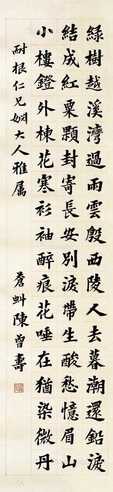 綠樹越溪灣過雨雲殷西陵人去暮潮還鉛淚
結成紅粟顆封寄長安別淚帶生酸愁憶眉山
小樓鐙外棟花寒衫袖醉痕花唾在猶染微丹
耐根仁兄姻大人雅屬
蒼虯陳曾壽